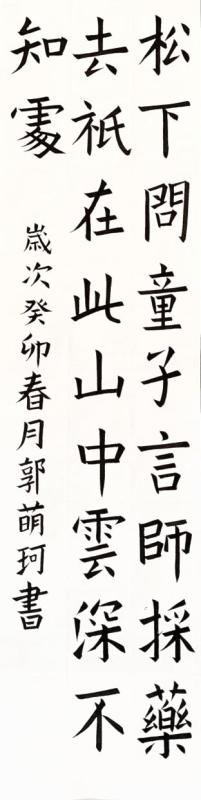 松下問童子言師採藥
去祇在此山中雲深不
知處
歲次癸卯春月郭萌珂書